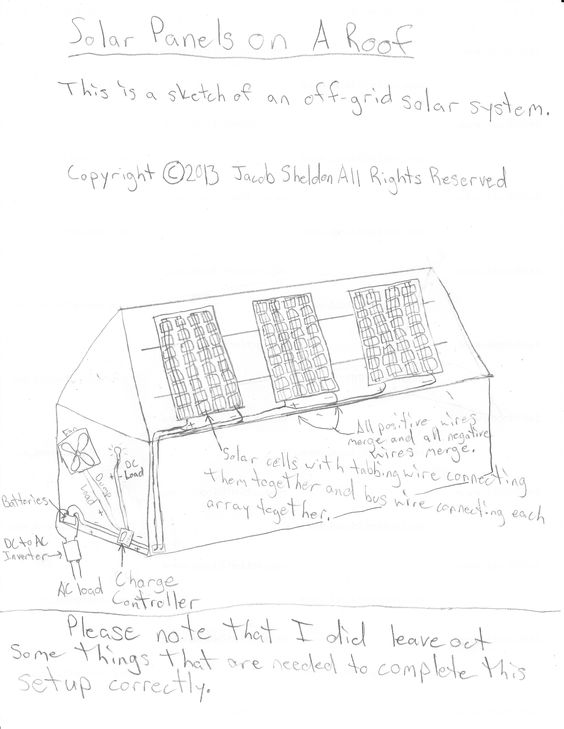 Solar Panels on A Roof
This is a sketch of an off-grid solar system.
Copyright ©2013 Jacob Sheldon All Rights Reserved
All positive wires
merge and all negative
wires merge.
Solar cells with tabbing wire connecting
them together and bus wire connecting each
array together.
+
-
Fan
DC
Load
+
-
Dump
Load
Batteries
DC to AC
Inverter
AC load
Charge
Controller
Please note that I did leave out
some things that are needed to complete this
setup correctly.